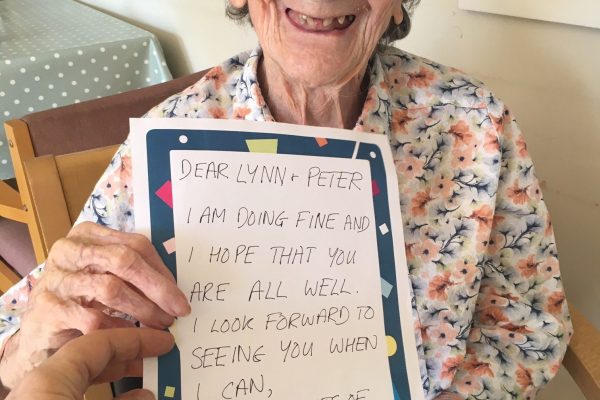 DEAR LYNN + PETER
I AM DOING FINE AND
I HOPE THAT YOU
ARE ALL WELL.
I LOOK FORWARD TO
SEEING YOU WHEN
I CAN,